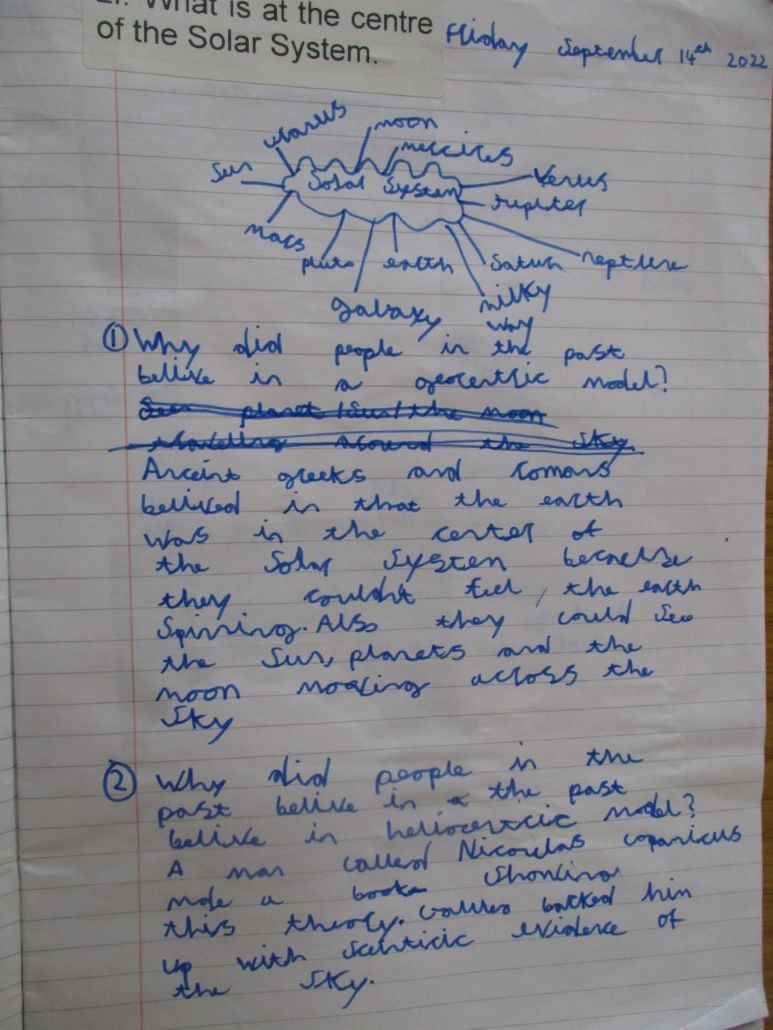 LI: What is at the centre
of the Solar System.
Friday September 14th 2022
uranus
moon
mercires
Sun
Solar System
Venus
Jupiter
Mars
pluto
earth
Saturn
neptune
galaxy
milky
way
① Why did people in the past
belive in a geocentric model?
See planet / Sun / the moon
travelling around the sky
Anceint greeks and romans
belived in that the earth
was in the center of
the Solar System becuase
they couldn't feel, the earth
Spinning. Also they could See
the Sun, planets and the
moon moving across the
Sky
② Why did people in the
past belive in the past
belive in heliocentric model?
A man called Nicoulas copanicus
made a book Showing
this theory. Galileo backed him
up with Scenticic evidence of
the Sky.